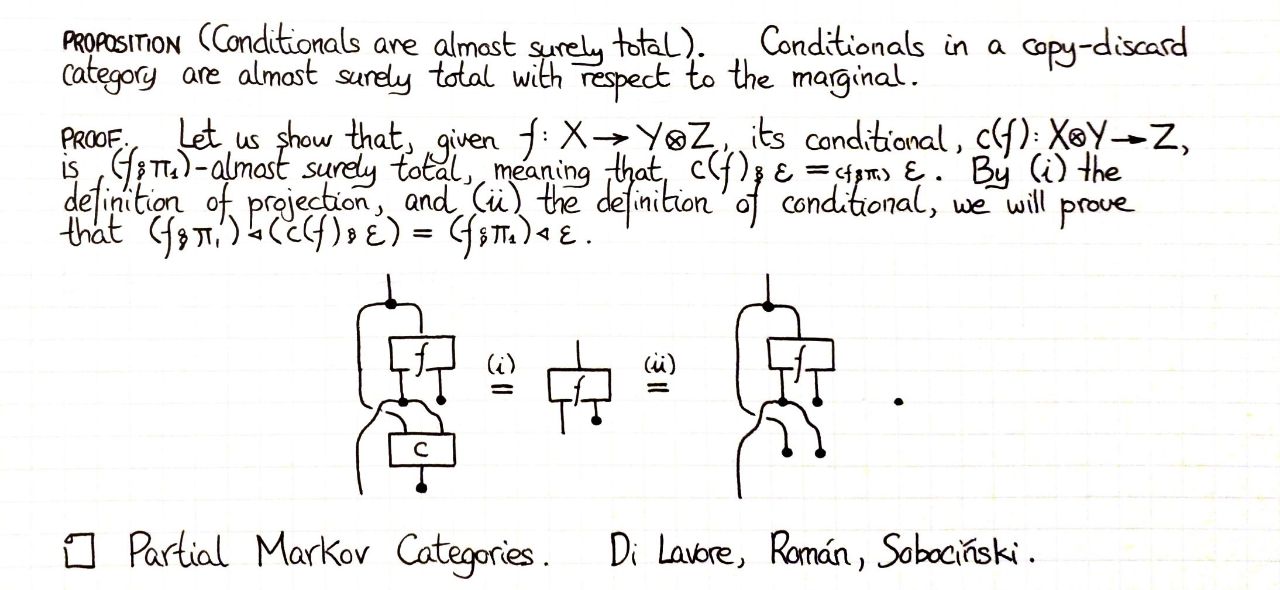 PROPOSITION (Conditionals are almost surely total). Conditionals in a copy-discard
category are almost surely total with respect to the marginal.
PROOF. Let us show that, given f: X → Y⊗Z, its conditional, c(f): X⊗Y → Z,
is (f⨾π₁)-almost surely total, meaning that c(f)⨾ε =₍f⨾π₁₎ ε. By (i) the
definition of projection, and (ii) the definition of conditional, we will prove
that (f⨾π₁)◃(c(f)⨾ε) = (f⨾π₁)◃ε.
f (i) = f (ii) = f .
c
Partial Markov Categories. Di Lavore, Román, Sobociński.